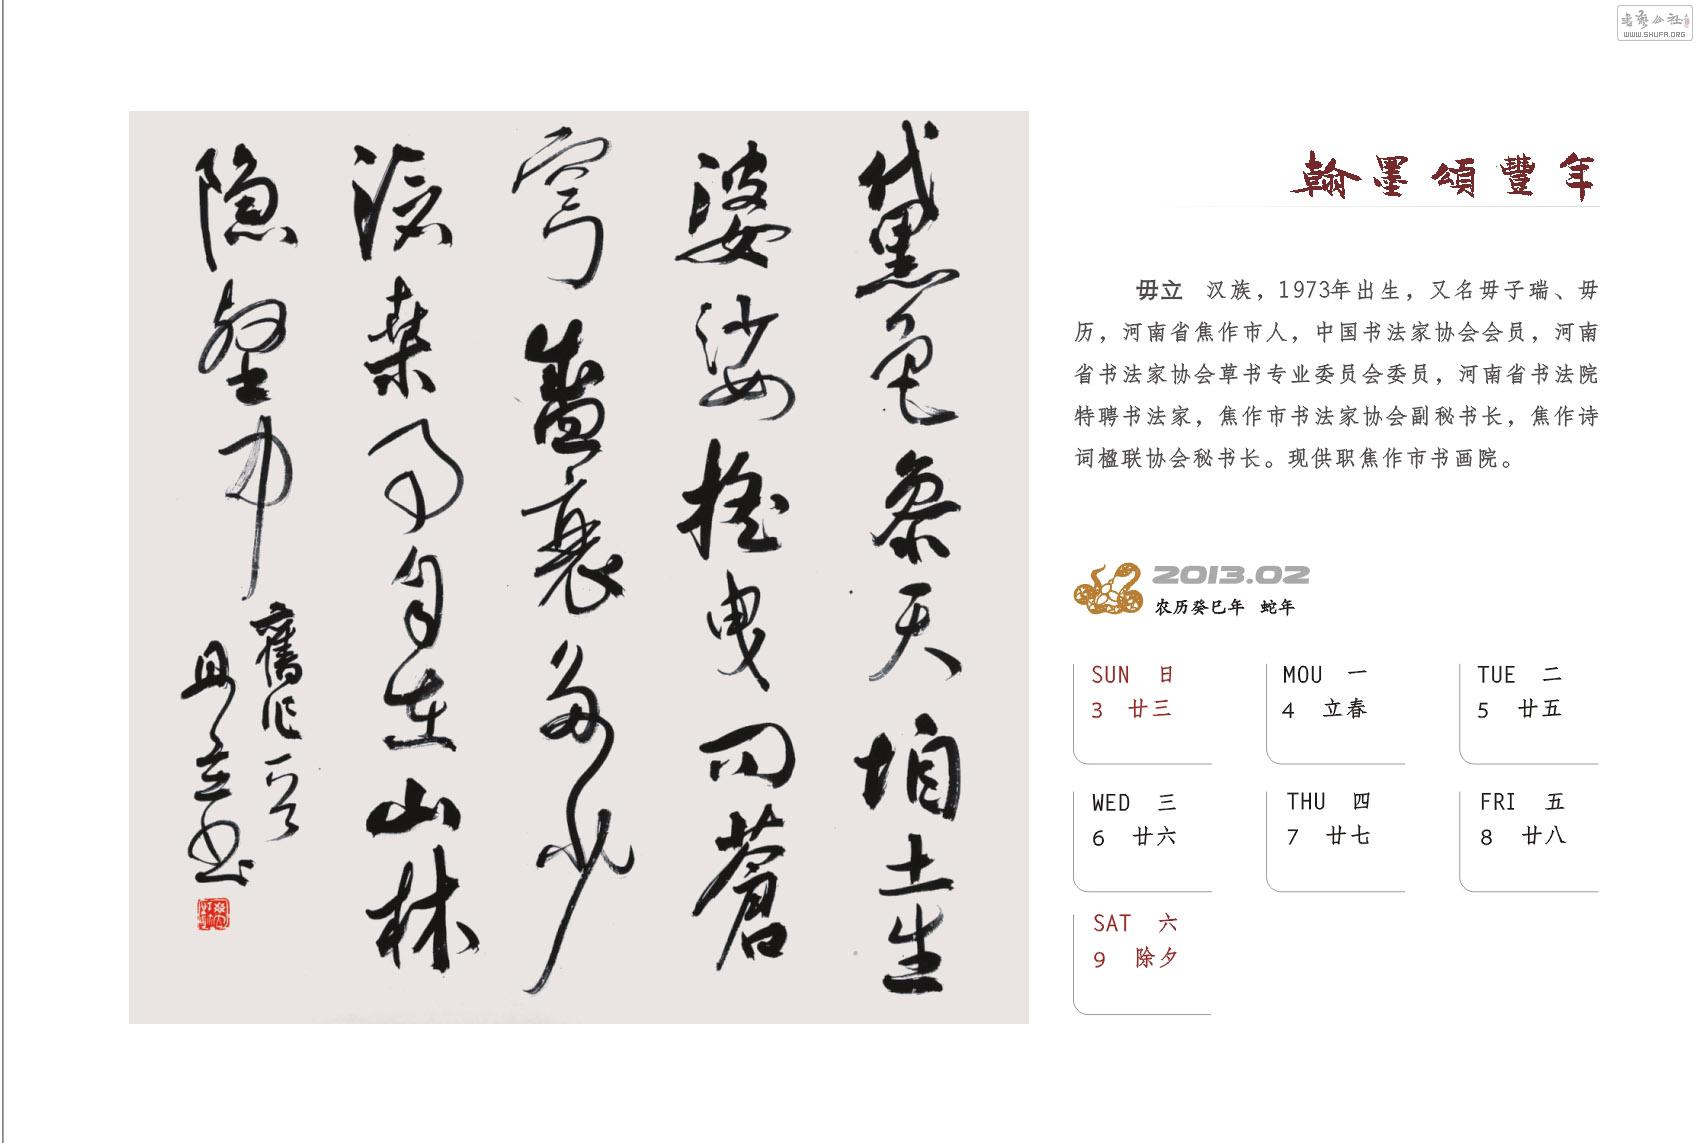 黛色参天土生
婆娑摇曳问蒼
穹盛衰多少
沧桑事自在山林
隐中
舊作一首
毋立书
翰墨頌豐年
毋立 汉族，1973年出生，又名毋子瑞、毋
历，河南省焦作市人，中国书法家协会会员，河南
省书法家协会草书专业委员会委员，河南省书法院
特聘书法家，焦作市书法家协会副秘书长，焦作诗
词楹联协会秘书长。现供职焦作市书画院。
2013.02
农历癸巳年 蛇年
SUN 日
3 廿三
MOU 一
4 立春
TUE 二
5 廿五
WED 三
6 廿六
THU 四
7 廿七
FRI 五
8 廿八
SAT 六
9 除夕
WWW.SHUFA.ORG